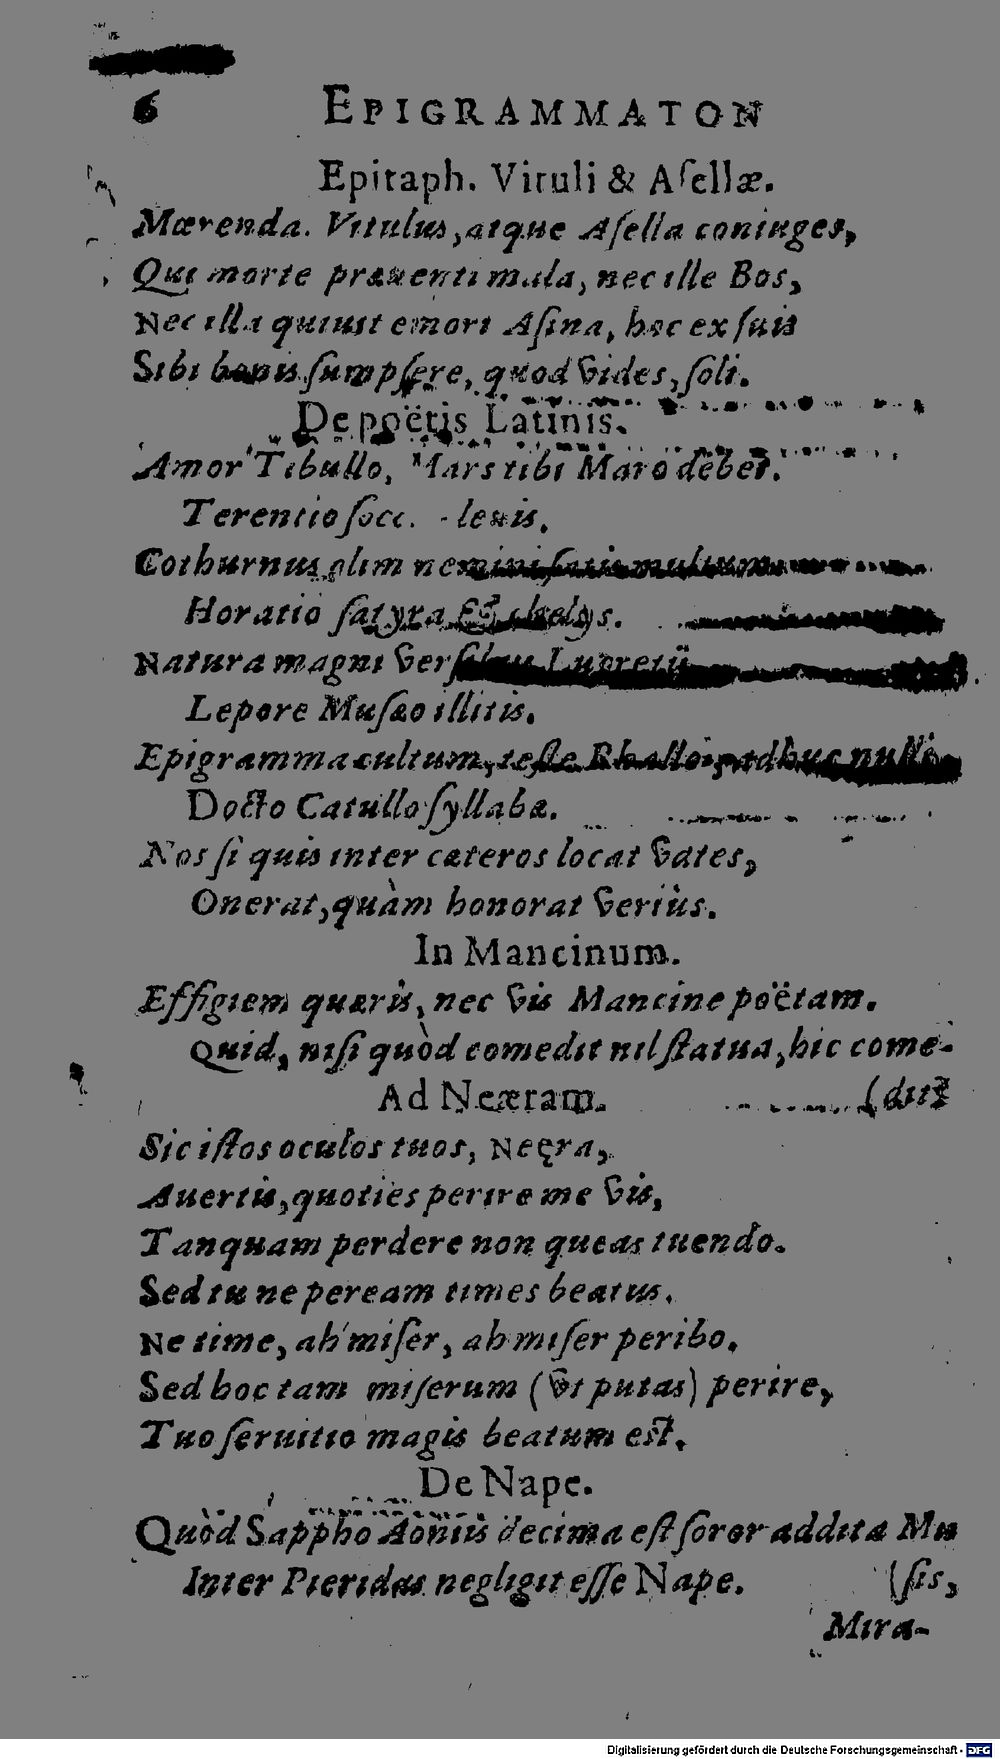 6 EPIGRAMMATON
Epitaph. Vituli & Aſellæ.
Mærenda. Vitulus, atque Aſella coniuges,
Qui morte præuenti mala, nec ille Bos,
Nec illa quiuit emori Aſina, hoc ex ſuis
Sibi bonis ſumpſere, quod vides, ſoli.
De poëtis Latinis.
Amor Tibullo, Mars tibi Maro debet.
Terentio ſocc. leuis.
Cothurnus olim nemini ſatis multum
Horatio ſatyra & chelys.
Natura magni verſibus Lucretij
Lepore Muſæo illitis.
Epigramma cultum, teſte Rhalloi, adhuc nulli
Docto Catullo ſyllabæ.
Nos ſi quis inter cæteros locat vates,
Onerat, quàm honorat veriùs.
In Mancinum.
Effigiem quæris, nec vis Mancine poëtam.
Quid, niſi quòd comedit nil ſtatua, hic come-
Ad Neæram. (dit?
Sic iſtos oculos tuos, Neęra,
Auertis, quoties perire me vis,
Tanquam perdere non queas tuendo.
Sed tu ne peream times beatus.
Ne time, ah miſer, ah miſer peribo.
Sed hoc tam miſerum (vt putas) perire,
Tuo ſeruitio magis beatum eſt.
De Nape.
Quòd Sappho Aoniis decima eſt ſoror addita Mu
Inter Pieridas negligit eſſe Nape. (ſis,
Mira-
Digitalisierung gefördert durch die Deutsche Forschungsgemeinschaft - DFG